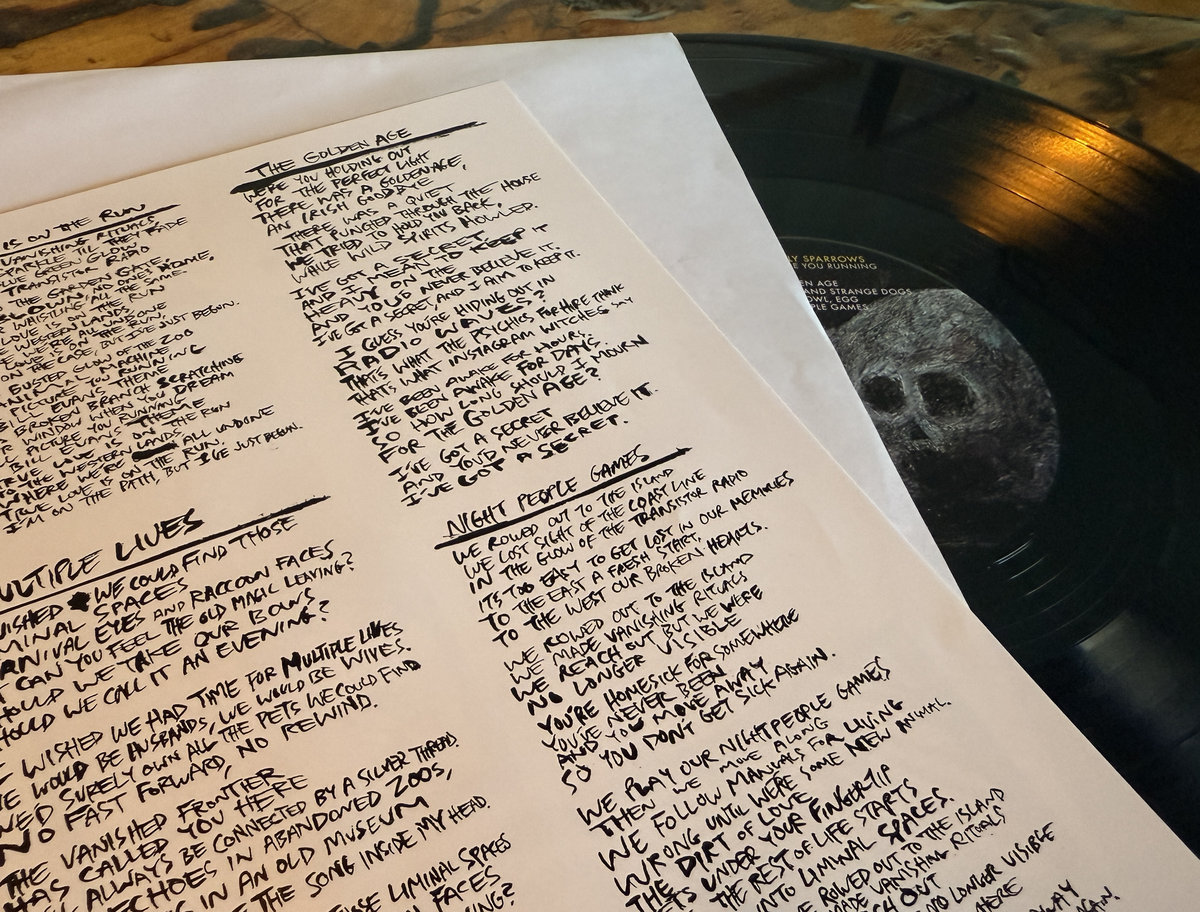 IS ON THE RUN
VANISHING RITUALS
SPARKLE 'TIL THEY FADE
GLOW
TRANSISTOR RADIO
THE GARDEN GATE,
WHISTLING ALL THE SAME.
LOVE IS ON THE RUN
WESTERN LANDS
WE'RE ALL UNDONE
LOVE IS ON THE RUN.
ON THE CASE, BUT I'VE JUST BEGUN.
BUSTED GLOW OF THE ZOO
MACHINE
PICTURE YOU RUNNING
BILL EVANS THEME
BROKEN BRANCH SCRATCHING
WINDOW WHEN YOU DREAM
PICTURE YOU RUNNING
BILL EVANS THEME
TRUE LOVE IS ON THE RUN
TO THE WESTERN LANDS
WHERE WE'RE ALL UNDONE
TRUE LOVE IS ON THE RUN.
I'M ON THE PATH, BUT I'VE JUST BEGUN.
MULTIPLE LIVES
WISHED WE COULD FIND THOSE
LIMINAL SPACES
CARNIVAL EYES AND RACCOON FACES
CAN YOU FEEL THE OLD MAGIC LEAVING?
SHOULD WE TAKE OUR BOWS
SHOULD WE CALL IT AN EVENING?
WISHED WE HAD TIME FOR MULTIPLE LIVES
WE WOULD BE HUSBANDS, WE WOULD BE WIVES.
WE'D SURELY OWN ALL THE PETS WE COULD FIND
NO FAST FORWARD, NO REWIND.
THE VANISHED FRONTIER
HAS CALLED YOU HERE
ALWAYS BE CONNECTED BY A SILVER THREAD.
ECHOES IN ABANDONED ZOOS,
IN AN OLD MUSEUM
THE SONG INSIDE MY HEAD.
THOSE LIMINAL SPACES
FACES
THE GOLDEN AGE
WERE YOU HOLDING OUT
FOR THE PERFECT LIGHT
THERE WAS A GOLDEN AGE,
AN IRISH GOODBYE
THERE WAS A QUIET
THAT PUNCHED THROUGH THE HOUSE
WE TRIED TO HOLD YOU BACK,
WHILE WILD SPIRITS HOWLED.
I'VE GOT A SECRET
AND I MEAN TO KEEP IT
HEAVY ON THE
AND YOU'D NEVER BELIEVE IT.
I'VE GOT A SECRET, AND I AIM TO KEEP IT.
I GUESS YOU'RE HIDING OUT IN
RADIO WAVES?
THAT'S WHAT THE PSYCHICS FOR HIRE THINK
THAT'S WHAT INSTAGRAM WITCHES SAY
I'VE BEEN AWAKE FOR HOURS.
I'VE BEEN AWAKE FOR DAYS.
SO HOW LONG SHOULD I MOURN
FOR THE GOLDEN AGE?
I'VE GOT A SECRET
AND YOU'D NEVER BELIEVE IT.
I'VE GOT A SECRET.
NIGHT PEOPLE GAMES
WE ROWED OUT TO THE ISLAND
WE LOST SIGHT OF THE COAST LINE
IN THE GLOW OF THE TRANSISTOR RADIO
IT'S TOO EASY TO GET LOST IN OUR MEMORIES
TO THE EAST A FRESH START.
TO THE WEST OUR BROKEN HEARTS.
WE ROWED OUT TO THE ISLAND
WE MADE VANISHING RITUALS
WE REACH OUT BUT WE WERE
NO LONGER VISIBLE
YOU'RE HOMESICK FOR SOMEWHERE
YOU'VE NEVER BEEN
AND YOU MOVE AWAY
SO YOU DON'T GET SICK AGAIN.
WE PLAY OUR NIGHT PEOPLE GAMES
THEN WE MOVE ALONG
WE FOLLOW MANUALS FOR LIVING
WRONG UNTIL WE'RE SOME NEW ANIMAL.
THE DIRT OF LOVE
GETS UNDER YOUR FINGERTIP
THE REST OF LIFE STARTS
INTO LIMINAL SPACES.
WE ROWED OUT TO THE ISLAND
MADE VANISHING RITUALS
REACH OUT
NO LONGER VISIBLE
AWAY
AGAIN.
LY SPARROWS
E YOU RUNNING
EN AGE
AND STRANGE DOGS
OWL, EGG
PLE GAMES